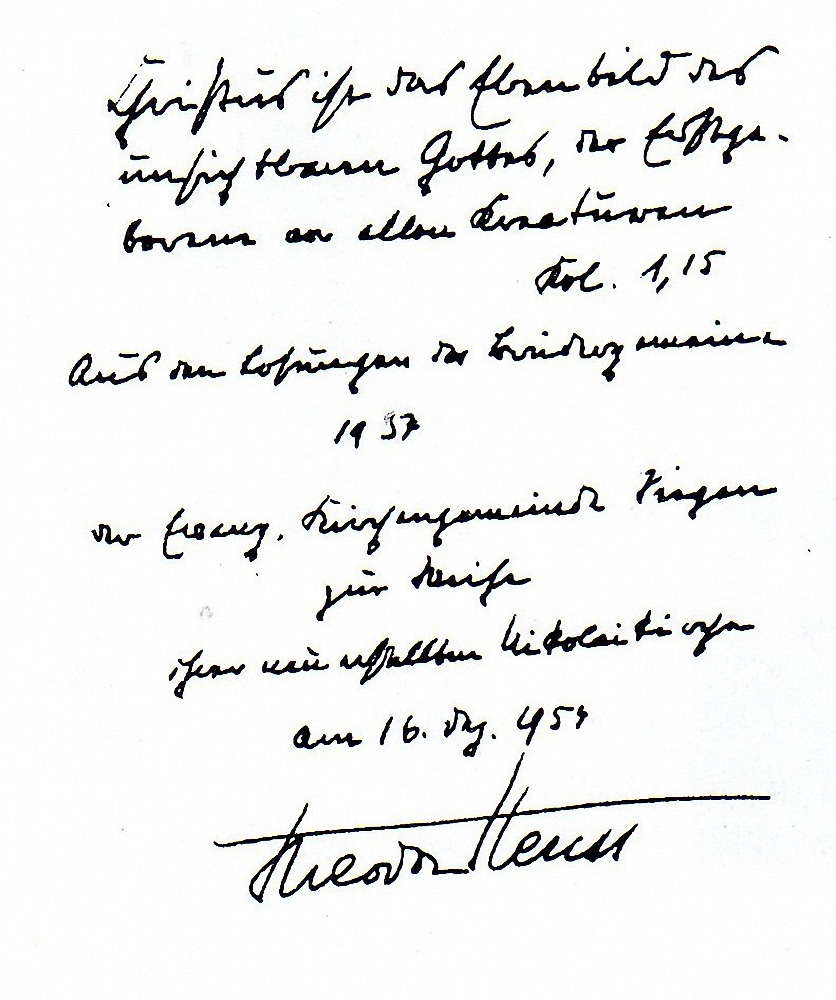 Christus ist das Ebenbild des
unsichtbaren Gottes, der Erstge-
borene vor allen Kreaturen
Kol. 1,15
Aus den Losungen der Brüdergemeine
1937
der Evang. Kirchengemeinde Siegen
zur Weihe
ihrer neu erstellten Nikolaikirche
am 16. Dez. 1954
Theodor Heuss